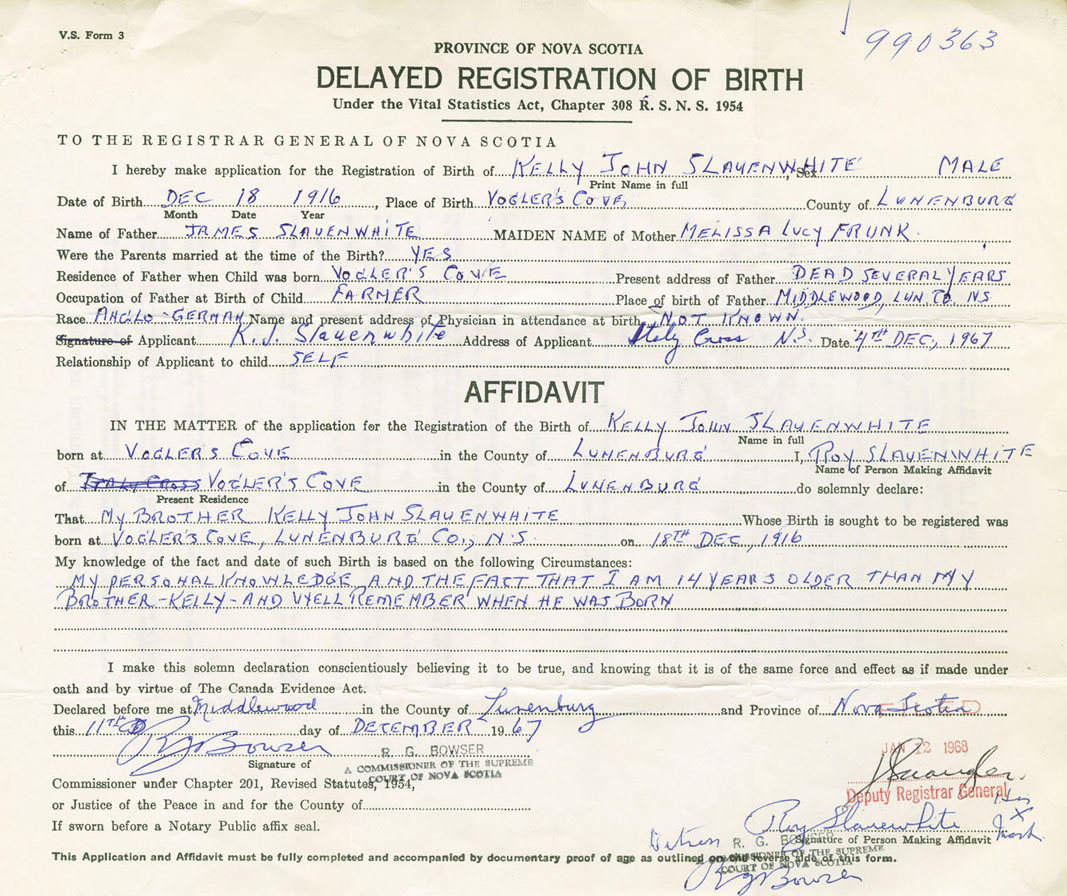 V.S. Form 3
990363
PROVINCE OF NOVA SCOTIA
DELAYED REGISTRATION OF BIRTH
Under the Vital Statistics Act, Chapter 308 R. S. N. S. 1954
TO THE REGISTRAR GENERAL OF NOVA SCOTIA
I hereby make application for the Registration of Birth of KELLY JOHN SLAUENWHITE, Sex MALE
Print Name in full
Date of Birth DEC 18 1916, Place of Birth VOGLER'S COVE, County of LUNENBURG
Month Date Year
Name of Father JAMES SLAUENWHITE MAIDEN NAME of Mother MELISSA LUCY FRUNK.
Were the Parents married at the time of the Birth? YES
Residence of Father when Child was born VOGLER'S COVE Present address of Father DEAD SEVERAL YEARS
Occupation of Father at Birth of Child FARMER Place of birth of Father MIDDLEWOOD, LUN. CO. NS
Race ANGLO-GERMAN Name and present address of Physician in attendance at birth NOT KNOWN.
Signature of Applicant K. J. Slauenwhite Address of Applicant Italy Cross N.S. Date 4TH DEC, 1967
Relationship of Applicant to child SELF
AFFIDAVIT
IN THE MATTER of the application for the Registration of the Birth of KELLY JOHN SLAUENWHITE
Name in full
born at VOGLER'S COVE in the County of LUNENBURG I, ROY SLAUENWHITE
Name of Person Making Affidavit
of ITALY CROSS VOGLER'S COVE in the County of LUNENBURG do solemnly declare:
Present Residence
That MY BROTHER KELLY JOHN SLAUENWHITE Whose Birth is sought to be registered was
born at VOGLER'S COVE, LUNENBURG CO., N.S. on 18TH DEC, 1916
My knowledge of the fact and date of such Birth is based on the following Circumstances:
MY PERSONAL KNOWLEDGE AND THE FACT THAT I AM 14 YEARS OLDER THAN MY
BROTHER-KELLY-AND WELL REMEMBER WHEN HE WAS BORN
I make this solemn declaration conscientiously believing it to be true, and knowing that it is of the same force and effect as if made under
oath and by virtue of The Canada Evidence Act.
Declared before me at Middlewood in the County of Lunenburg and Province of Nova Scotia
this 11TH day of DECEMBER 1967
JAN 12 1968
RG Bowser
R. G. BOWSER
Signature of
A COMMISSIONER OF THE SUPREME
COURT OF NOVA SCOTIA
Commissioner under Chapter 201, Revised Statutes, 1954,
Deputy Registrar General
or Justice of the Peace in and for the County of
His
Roy Slauewhite X
If sworn before a Notary Public affix seal.
Mark
Witness R. G. BOWSER
Signature of Person Making Affidavit
A COMMISSIONER OF THE SUPREME
COURT OF NOVA SCOTIA
This Application and Affidavit must be fully completed and accompanied by documentary proof of age as outlined on the reverse side of this form.
RG Bowser